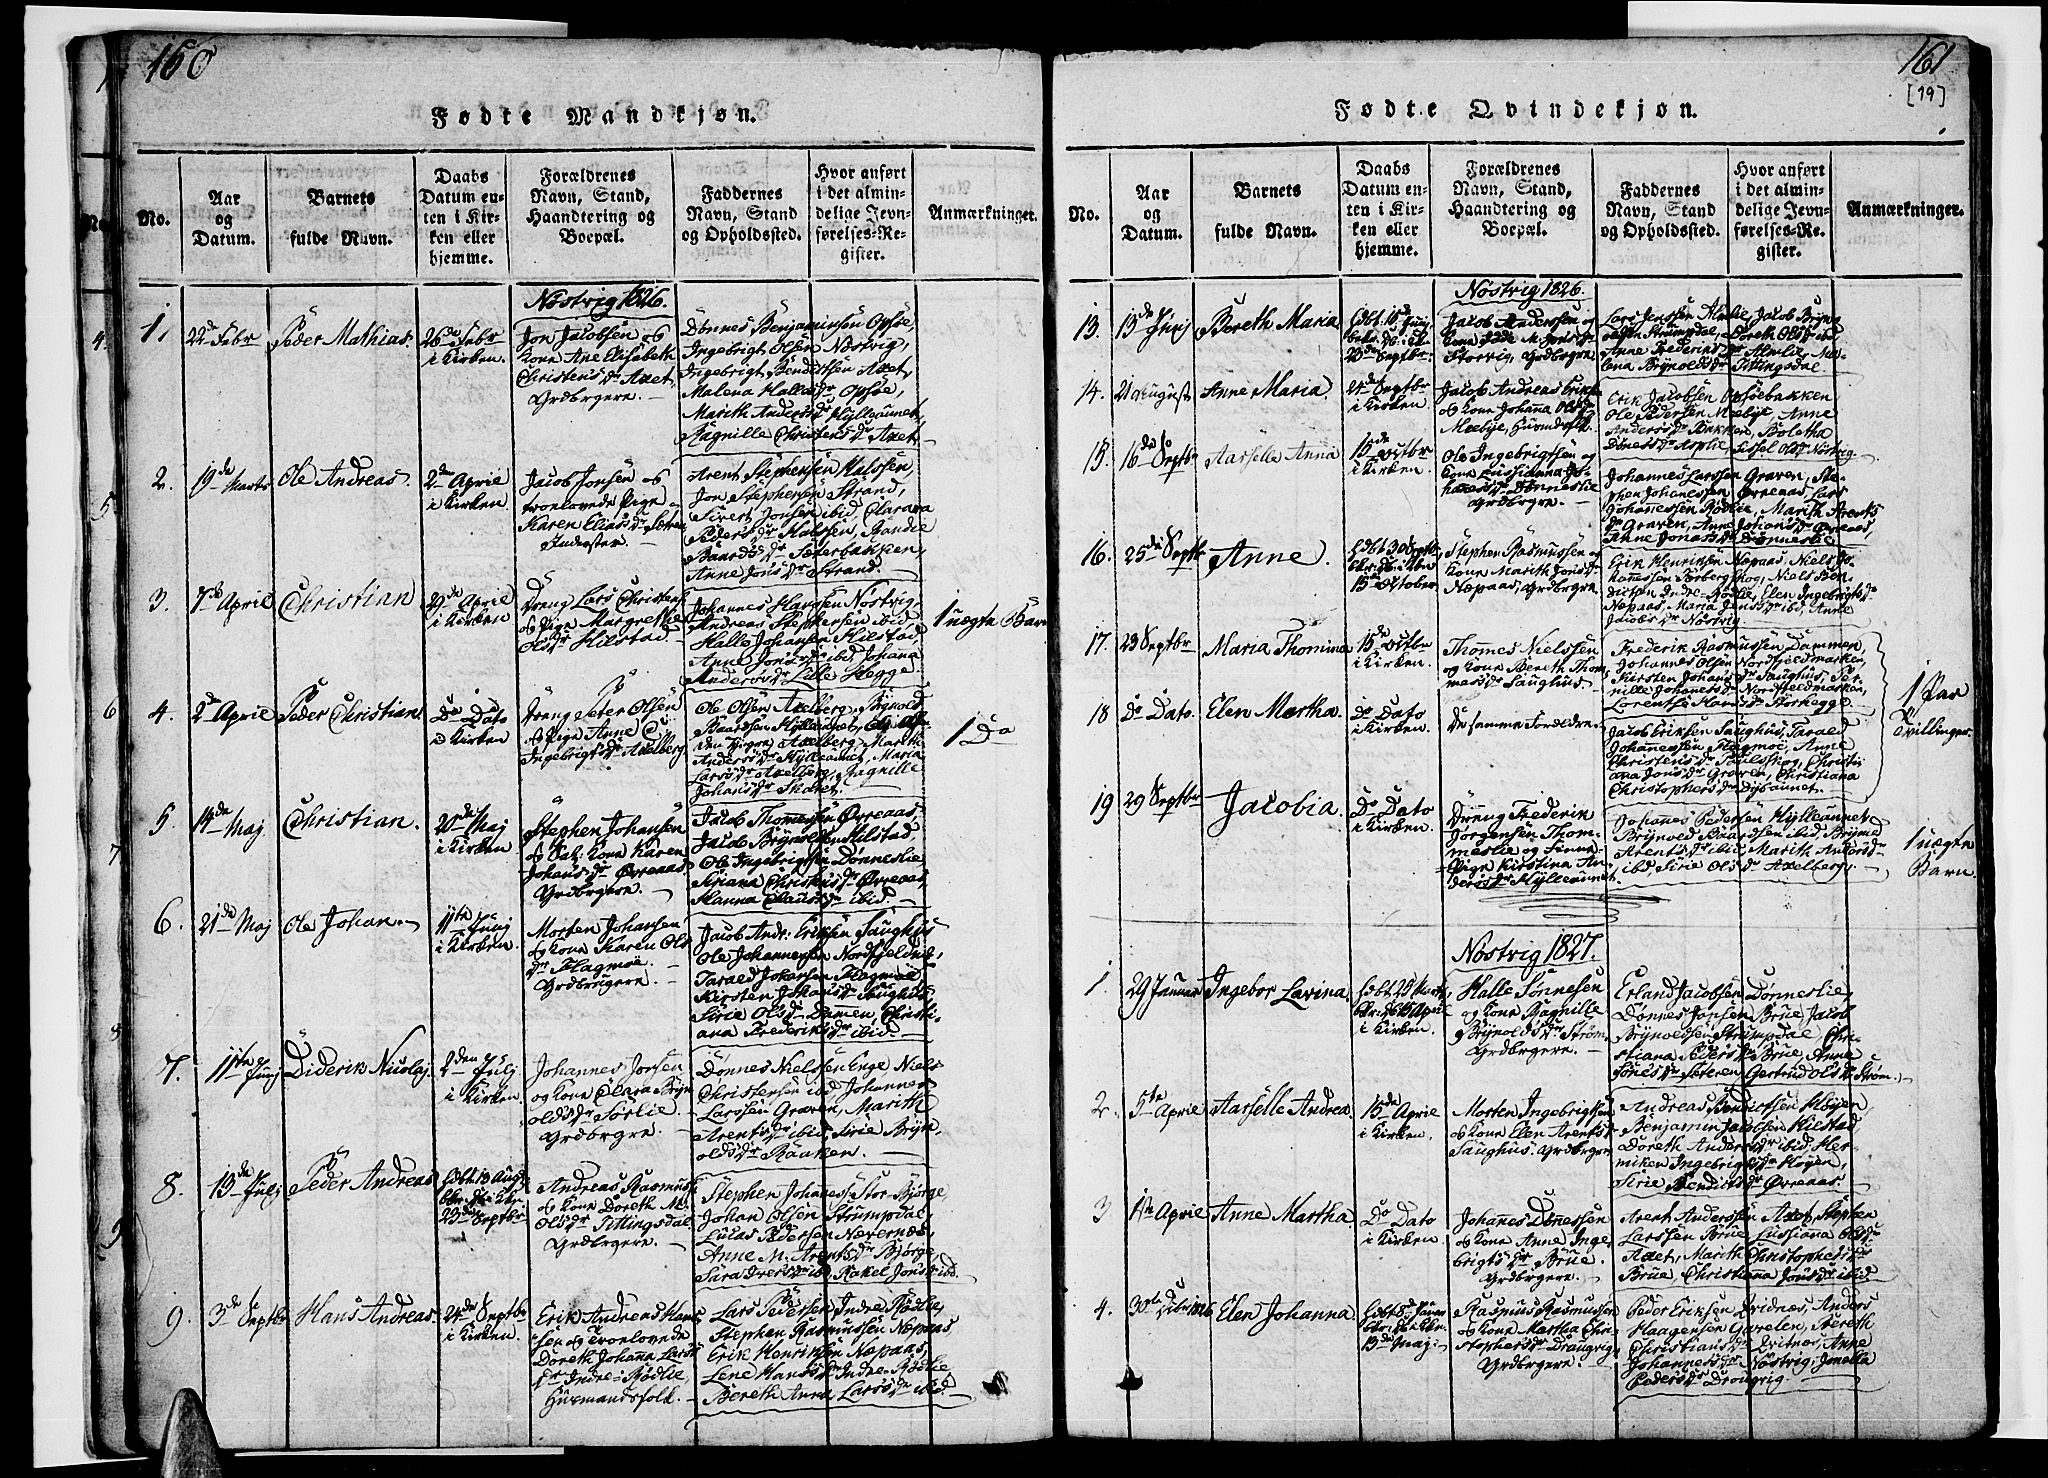 160
Fødte Mandkjøn.
No.
Aar
og
Datum.
Barnets
fulde Navn.
Daabs
Datum en-
ten i Kir-
ken eller
hjemme.
Forældrenes
Navn, Stand,
Haandtering og
Boepæl.
Faddernes
Navn, Stand
og Opholdssted.
Hvor anført
i det almin-
delige Jevn-
førelses-Re-
gister.
Anmærkninger.
Nøstvig 1826.
1.
22de Febr
Peder Mathias.
26de Febr
i Kirken.
Jon Jacobsen og
Kone Ane Elisabeth
Christensdr Axet,
Grdbrgere.
Dønnes Benjaminsen Opsøe,
Ingebrigt Olsen Næstvig,
Ingebrigt Bendictsen Axet,
Malena Hallesdr Opsøe,
Marith Andersdr Hylleaunet,
Ragnille Christensdr Axet.
2.
19de Marts
Ole Andreas.
2den Aprie
i Kirken.
Jacob Jonsen og
trovlovede Pige
Karen Eliasdr
Inderster.
Arent Stephensen Halssen,
Jon Stephensen Strand,
Sivert Jonsen ibid, Clarava
Pedersdr Halssen, Randie
Baardsdr Sæterbakken,
Anne Jonsdr Strand.
3.
April
Christian
April
i Kirken.
Dreng Lars Christens:
og Pige Margrethe
Olsdr Hilstad.
Johannes Hanssen Nøstvig,
Andreas Stephensen ibid
Halle Johansen Hilstad,
Anne Jonsdr ibid, Johana
Andersdr Lille Hegge.
1 uægte Barn
4.
2de April
Peder Christian
Do Dato
i Kirken.
Dreng Peter Olsen
og Pige Anne
Ingebrigtsdr Axelberg
Ole Olsen Axelberg, Brynold
Baardsen Hylleaunet,
Axelberg, Marith
Andersdr Hylleaunet, Maria
Larsdr Axelberg, Ragnille
Johansdr
1 Do
5.
14de Maj
Christian.
20de Maj
i Kirken
Stephen Johansen
og Sal: Kone Karen
Johansdr Øvreaas
Grdbrgere.
Jacob Thomesen Øvreaas,
Jacob Brynolsen Hilstad
Ole Ingebrigtsen Dønneslie
Siriana Christensdr Øvreaas,
Hanna Clausdr ibid.
6.
21de Maj
Ole Johan.
11te Junj
i Kirken.
Morten Johansen
og Kone Karen Ols
dr Flagmoe.
Grdbrugere.
Jacob Andr: Eriksen Saughus
Ole Johannessen Nordfjeldm:,
Taraed Johansen Flagmoe
Kirsten Johansdr Saughus
Sirie Olsdr Damen, Christi-
ana Frederiksdr ibid.
7.
11te Junj
Diderik Nicolaj.
2den Julj
i Kirken.
Johannes Jonsen
og Kone Clara Bryn
oldsdr Sørlie.
Grdbrgre.
Dønnes Nielssen Enge, Niels
Christensen ibid, Johannes
Larssen Graven, Marith
Arentsdr ibid, Sirie Bryn,
oldsdr Raaken.
8.
19de Julj
Peder Andreas
Hdbt 13 Augt
23de Septbr
Andreas Rasmus:
og Kone Doreth M.
Olsdr Tittingsdal.
Grdbrgere.
Stephen Johanes: Stor-Bjørge,
Johan Olsen Strumpdal,
Lucas Pedersen Nævernæs,
Anne M. Arentsdr Bjørge,
Sara Iversdr ibid, Rakel Jonsdr ibd.
9.
3de Septbr
Hans Andreas.
24de Septbr
i Kirken.
Erik Andreas Hans
sen og trovlovede
Doreth Johanna Lars
dr Indre-Rødlie,
Huusmandsfolk.
Lars Pedersen Indre Rødlie,
Stephen Rasmussen Næpaas,
Erik Henriksen Næpaas,
Lene Hansdr Indre-Rødlie
Bereth Anna Larsdr ibid.
161
[79]
Fødte Qvindekjøn.
No.
Aar
og
Datum.
Barnets
fulde Navn.
Daabs
Datum en-
ten i Kir-
ken eller
hjemme.
Forældrenes
Navn, Stand,
Haandtering og
Boepæl.
Faddernes
Navn, Stand
og Opholdssted.
Hvor anført
i det almin-
delige Jevn-
førelses-Re-
gister.
Anmærkninger.
Nøstvig 1826.
13.
13de Junj
Bereth Maria
Septbr
Jacob Anderssen og
Storvig, Grdbrgre
Lars Jenssen Almlie, Jacob Bryn-
oldsn Strumpdal, Doreth Olsdr ibid
Anne Frederiksdr Almlie, Ma-
lena Brynoldsdr Tittingsdal.
14.
21 August
Anne Maria.
24de Septbr
i Kirken.
Jacob Andreas Eriks:
og Kone Johana Olsdr
Mæbye, Huusmdsfolk.
Erik Jacobsen Opsøebakken
Ole Pedersen Mæbye, Anne
Andersdr Bakken, Boletha
Dønesdr Asplie, Sissel Olsdr Nøstvig.
15.
16de Septbr
Aarselle Anna
15de Octbr
i Kirken.
Ole Ingebrigtsen og
Kone Lussianna Jo-
hanesdr Dønneslie
Grdbrgre.
Johannes Larssen Graven, Ste-
phen Johanessen Øvreaas, Lars
Johanessen Rødlie, Marith Arents
dr Graven, Anne Johansdr Øvreaas,
Anne Jonasdr Dønneslie
16.
25de Septbr
Anne.
Hdbt 30 Septbr,
15de October
Stephen Rasmussen og
Kone Marith Jonsdr
Næpaas, Grdbrgre.
Erik Henriksen Næpaas, Niels Jo-
hannessen Torberg skog, Niels Ben-
dictsen Indre-Rødlie, Elen Ingebrigtsdr
Næpaas, Maria Jensdr ibid, Anne
Jacobsdr Nøstvig.
17.
29 Septbr
Maria Thomina
15de Octbr
i Kirken.
Thomes Nielssen
og Kone Bereth Thom-
mesdr Saughus.
Frederik Rasmussen Dammen,
Johannes Olsen Nordfjeldmarken,
Kirsten Johansdr Saughus, Per-
nille Johanesdr Nordfjeldmarken,
Lorentse Hansdr Storhegge.
1 Par
Tvillinger.
18
Do Dato.
Elen Martha.
Do Dato
i Kirken.
De samme Forældre.
Jacob Eriksen Saughus, Taraed
Johanessen Flagmoe, Anne
Christensdr Christi
ana Jonsdr Graven, Christiana
Christophersdr Dybaunet.
19
29 Septbr
Jacobia.
Do Dato
i Kirken.
Dreng Frederik
Jørgensen Thom-
meslie og
Pige Kirstina An-
dersdr Hylleaunet.
Johanes Pedersen Hylleaunet
Brynold Baardsen ibid, Bryme
Arentsdr ibid, Marith Andersdr
ibd, Sirie Olsdr Axelberg.
1 uægte
Barn.
Nøstvig 1827.
1.
29 Januar
Ingebor Lavina,
i Kirken.
Halle Tønnesen
og Kone Ragnille
Brynoldsdr Strøm
Grdbrgere.
Erland Jacobsen Dønneslie,
Dønnes Jonsen Brue, Jacob
Brynoldsen Strumpdal, Chri-
stiana Pedersdr Brue, Anne
Joensdr Seteren, Gertrud Olsdr Strøm.
2.
5te Aprie
Aarselle Andrea
15de April
i Kirken.
Morten Ingebrigtsen
og Kone Elen Arentsdr
Saughus. Grdbrgere
Andreas Bendictsen Høyen,
Benjamin Jacobsen Hilstad,
Doreth Andersdr ibid, Her-
miken Ingebrigtsdr Høyen,
Sirie Bendictsdr Øvreaas.
3.
Aprie
Anne Martha.
Do Dato
i Kirken.
Johannes Dønnessen
og Kone Anne Inge,
brigtsdr Brue.
Grdbrgere.
Arent Anderssen Axet, Stephen
Larssen Brue, Lussiana Olsdr
Axet, Marith Christophersdr
Brue, Christiana Jonsdr ibid.
4.
30te 1826
Elen Johanna.
13de Maj
Rasmus Rasmussen
og Kone Martha Chri-
stophersdr Draugvig
Grdbrgere.
Peder Eriksen Qvidnæs, Anders
Haagensen Garelen, Bereth
Christiansdr Qvitnæs, Anne
Johannesdr Nøstvig, Jonetta
Pedersdr Drougvig.